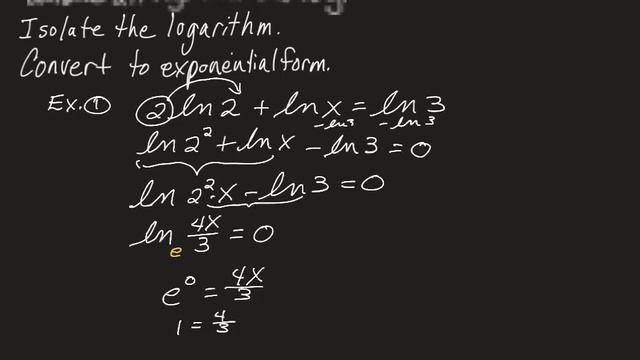 Isolate the logarithm.
Convert to exponential form.
Ex. ① 2 ln 2 + ln x = ln 3
- ln 3 - ln 3
ln 2² + ln x - ln 3 = 0
ln 2² · x - ln 3 = 0
ln 4x/3 = 0
e
e⁰ = 4x/3
1 = 4/3